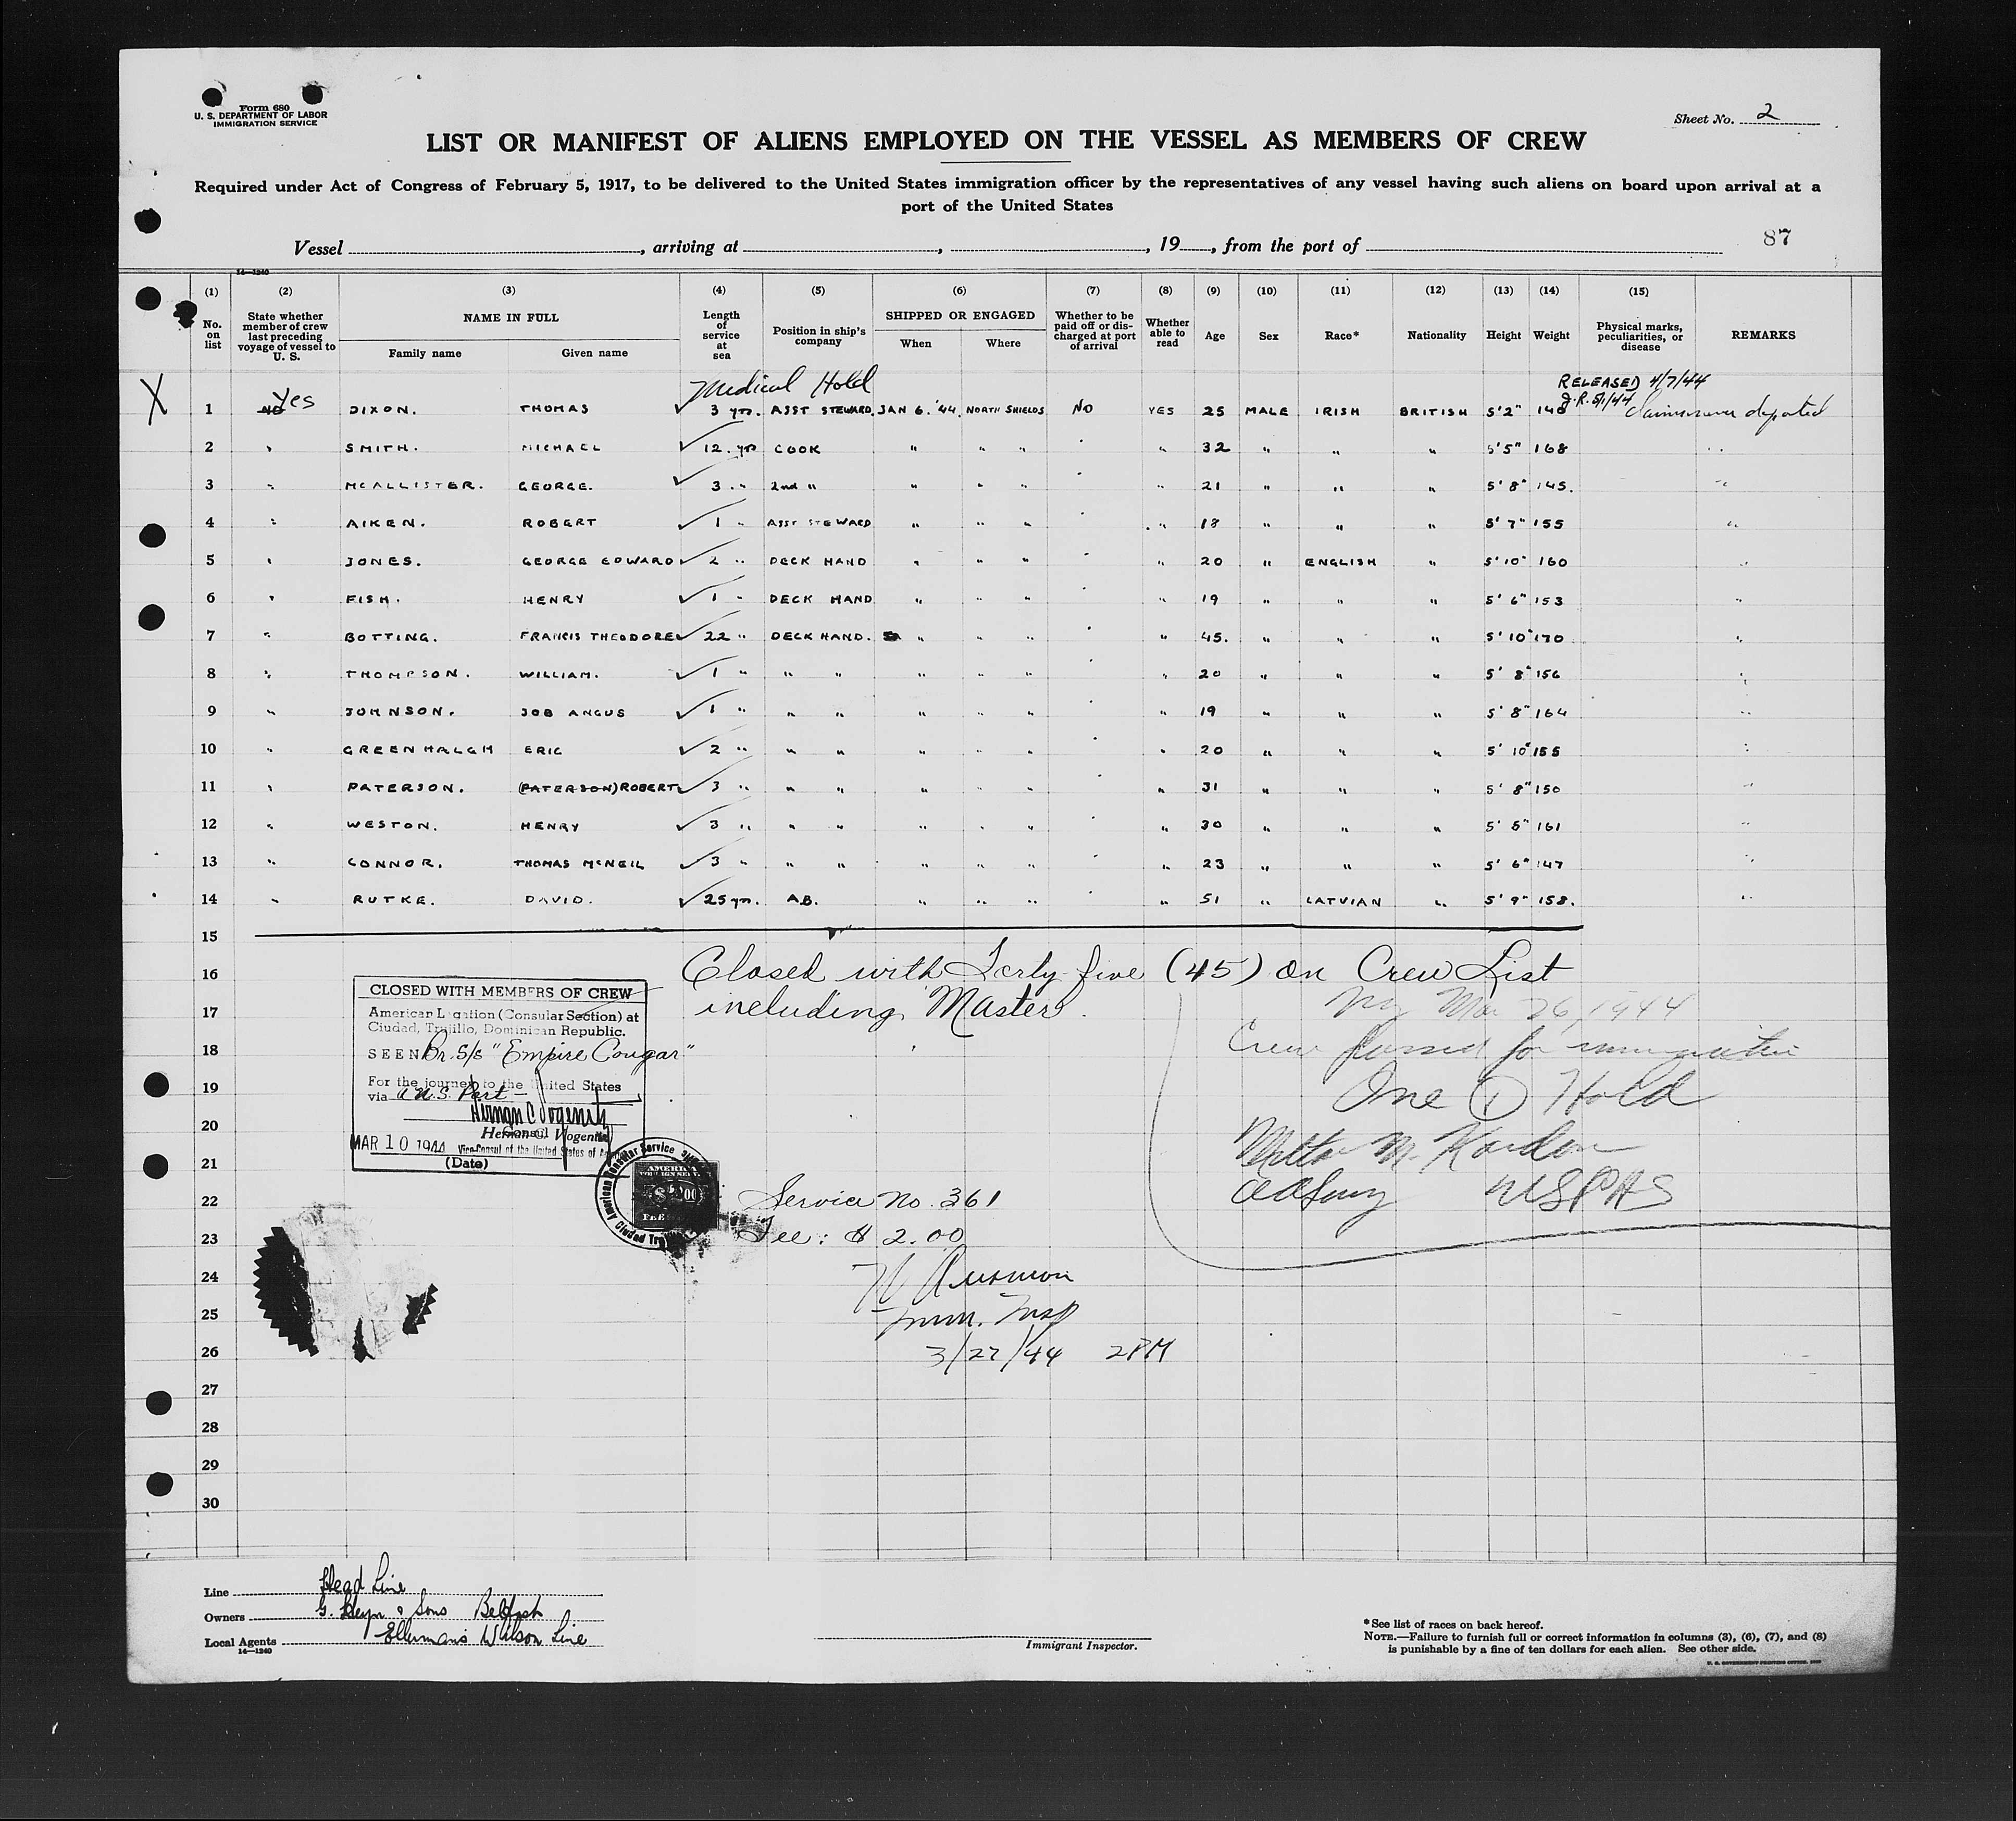 Form 680
U. S. DEPARTMENT OF LABOR
IMMIGRATION SERVICE
Sheet No. 2
LIST OR MANIFEST OF ALIENS EMPLOYED ON THE VESSEL AS MEMBERS OF CREW
Required under Act of Congress of February 5, 1917, to be delivered to the United States immigration officer by the representatives of any vessel having such aliens on board upon arrival at a
port of the United States
Vessel , arriving at , , 19 , from the port of 87
14—1240
(1) (2) (3) (4) (5) (6) (7) (8) (9) (10) (11) (12) (13) (14) (15)
No. on list State whether member of crew last preceding voyage of vessel to U. S. NAME IN FULL Family name Given name Length of service at sea Position in ship's company SHIPPED OR ENGAGED When Where Whether to be paid off or discharged at port of arrival Whether able to read Age Sex Race* Nationality Height Weight Physical marks, peculiarities, or disease REMARKS
Medical Hold RELEASED 4/7/44
X 1 No Yes DIXON. THOMAS 3 yrs. ASST STEWARD. JAN 6. '44. NORTH SHIELDS No YES 25 MALE IRISH BRITISH 5'2" 140 J.R. 5/1/44
2 " SMITH. MICHAEL 12. yrs COOK " " " " " 32 " " " 5'5" 168 "
3 " MCALLISTER. GEORGE. 3 " 2nd " " " " " " 21 " " " 5'8" 145. "
4 " AIKEN. ROBERT 1 " ASST STEWARD " " " " " 18 " " " 5'7" 155 "
5 " JONES. GEORGE EDWARD 2 " DECK HAND " " " " " 20 " ENGLISH " 5'10" 160 "
6 " FISH. HENRY 1 " DECK HAND " " " " " 19 " " " 5'6" 153 "
7 " BOTTING. FRANCIS THEODORE 22 " DECK HAND. " " " " " 45. " " " 5'10" 170 "
8 " THOMPSON. WILLIAM. 1 " " " " " " " " 20 " " " 5'8" 156 "
9 " JOHNSON. JOB ANGUS 1 " " " " " " " " 19 " " " 5'8" 164 "
10 " GREENHALGH ERIC 2 " " " " " " " " 20 " " " 5'10" 155 "
11 " PATERSON. (PATERSON) ROBERT 3 " " " " " " " " 31 " " " 5'8" 150 "
12 " WESTON. HENRY 3 " " " " " " " " 30 " " " 5'5" 161 "
13 " CONNOR. THOMAS MCNEIL 3 " " " " " " " " 23 " " " 5'6" 147 "
14 " RUTKE. DAVID. 25 yrs. A.B. " " " " " 51 " LATVIAN " 5'9" 158. "
15
16 Closed with Forty five (45) on Crew List
17 including Master.
18
19
20
21
22
23
24
25
26
27
28
29
30
CLOSED WITH MEMBERS OF CREW
American Legation (Consular Section) at
Ciudad, Trujillo, Dominican Republic.
SEEN Br. S/S "Empire Cougar"
For the journey to the United States
via a U.S. Port —
Consul
Vice-Consul of the United States of
MAR 10 1944
(Date)
American Foreign Service
Ciudad
AMERICAN
$2.00
Service No. 361
Fee: $ 2.00
Imm. Insp
3/27/44 2PM
NY Mar 26, 1944
Crew passed for immigration
One (1) Hold
Milton M.
USPHS
Line Head Line
Owners G. Heyn & Sons Belfast
Local Agents Ellerman's Wilson Line
14—1240
Immigrant Inspector.
*See list of races on back hereof.
NOTE.—Failure to furnish full or correct information in columns (3), (6), (7), and (8)
is punishable by a fine of ten dollars for each alien. See other side.
U. S. GOVERNMENT PRINTING OFFICE